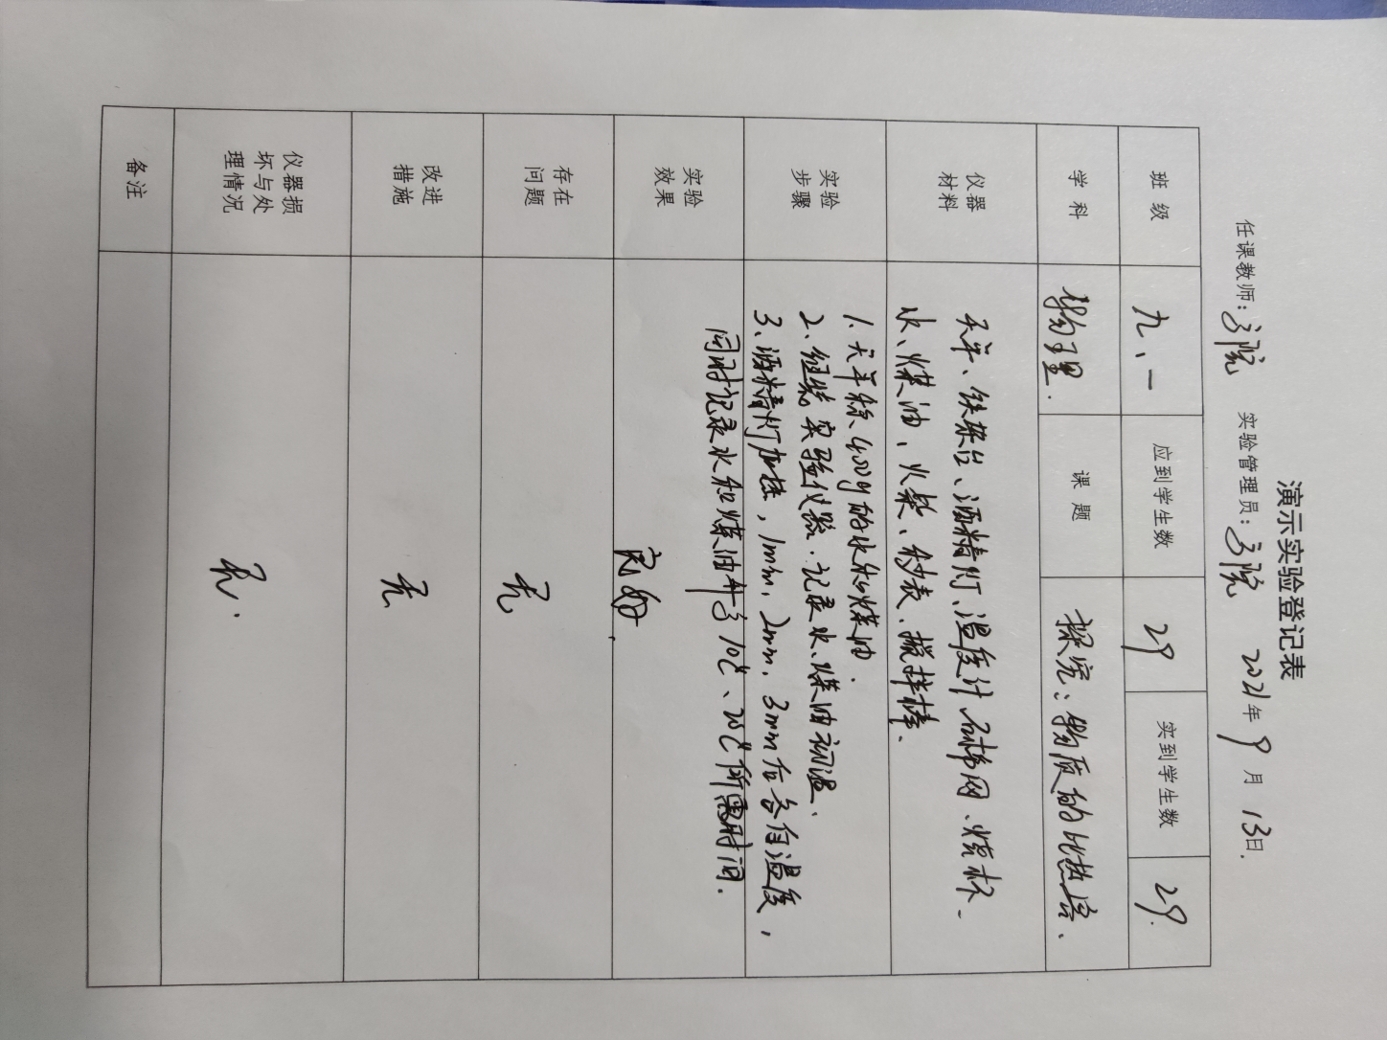 演示实验登记表
任课教师: 实验管理员: 2021年9月13日.
班级 九、一 应到学生数 29 实到学生数 29.
学科 物理. 课题 探究:物质的比热容、
仪器
材料
天平、铁架台、酒精灯、温度计、石棉网、烧杯、
水、煤油、火柴、秒表、搅拌棒、
实验
步骤
1.天平称400g的水和煤油.
2、组装实验仪器.记录水、煤油初温、
3、酒精灯加热,1min,2min,3min后各自温度,
同时记录水和煤油升高10℃、20℃所需时间.
实验
效果
良好.
存在
问题
无
改进
措施
无
仪器损
坏与处
理情况
无.
备注